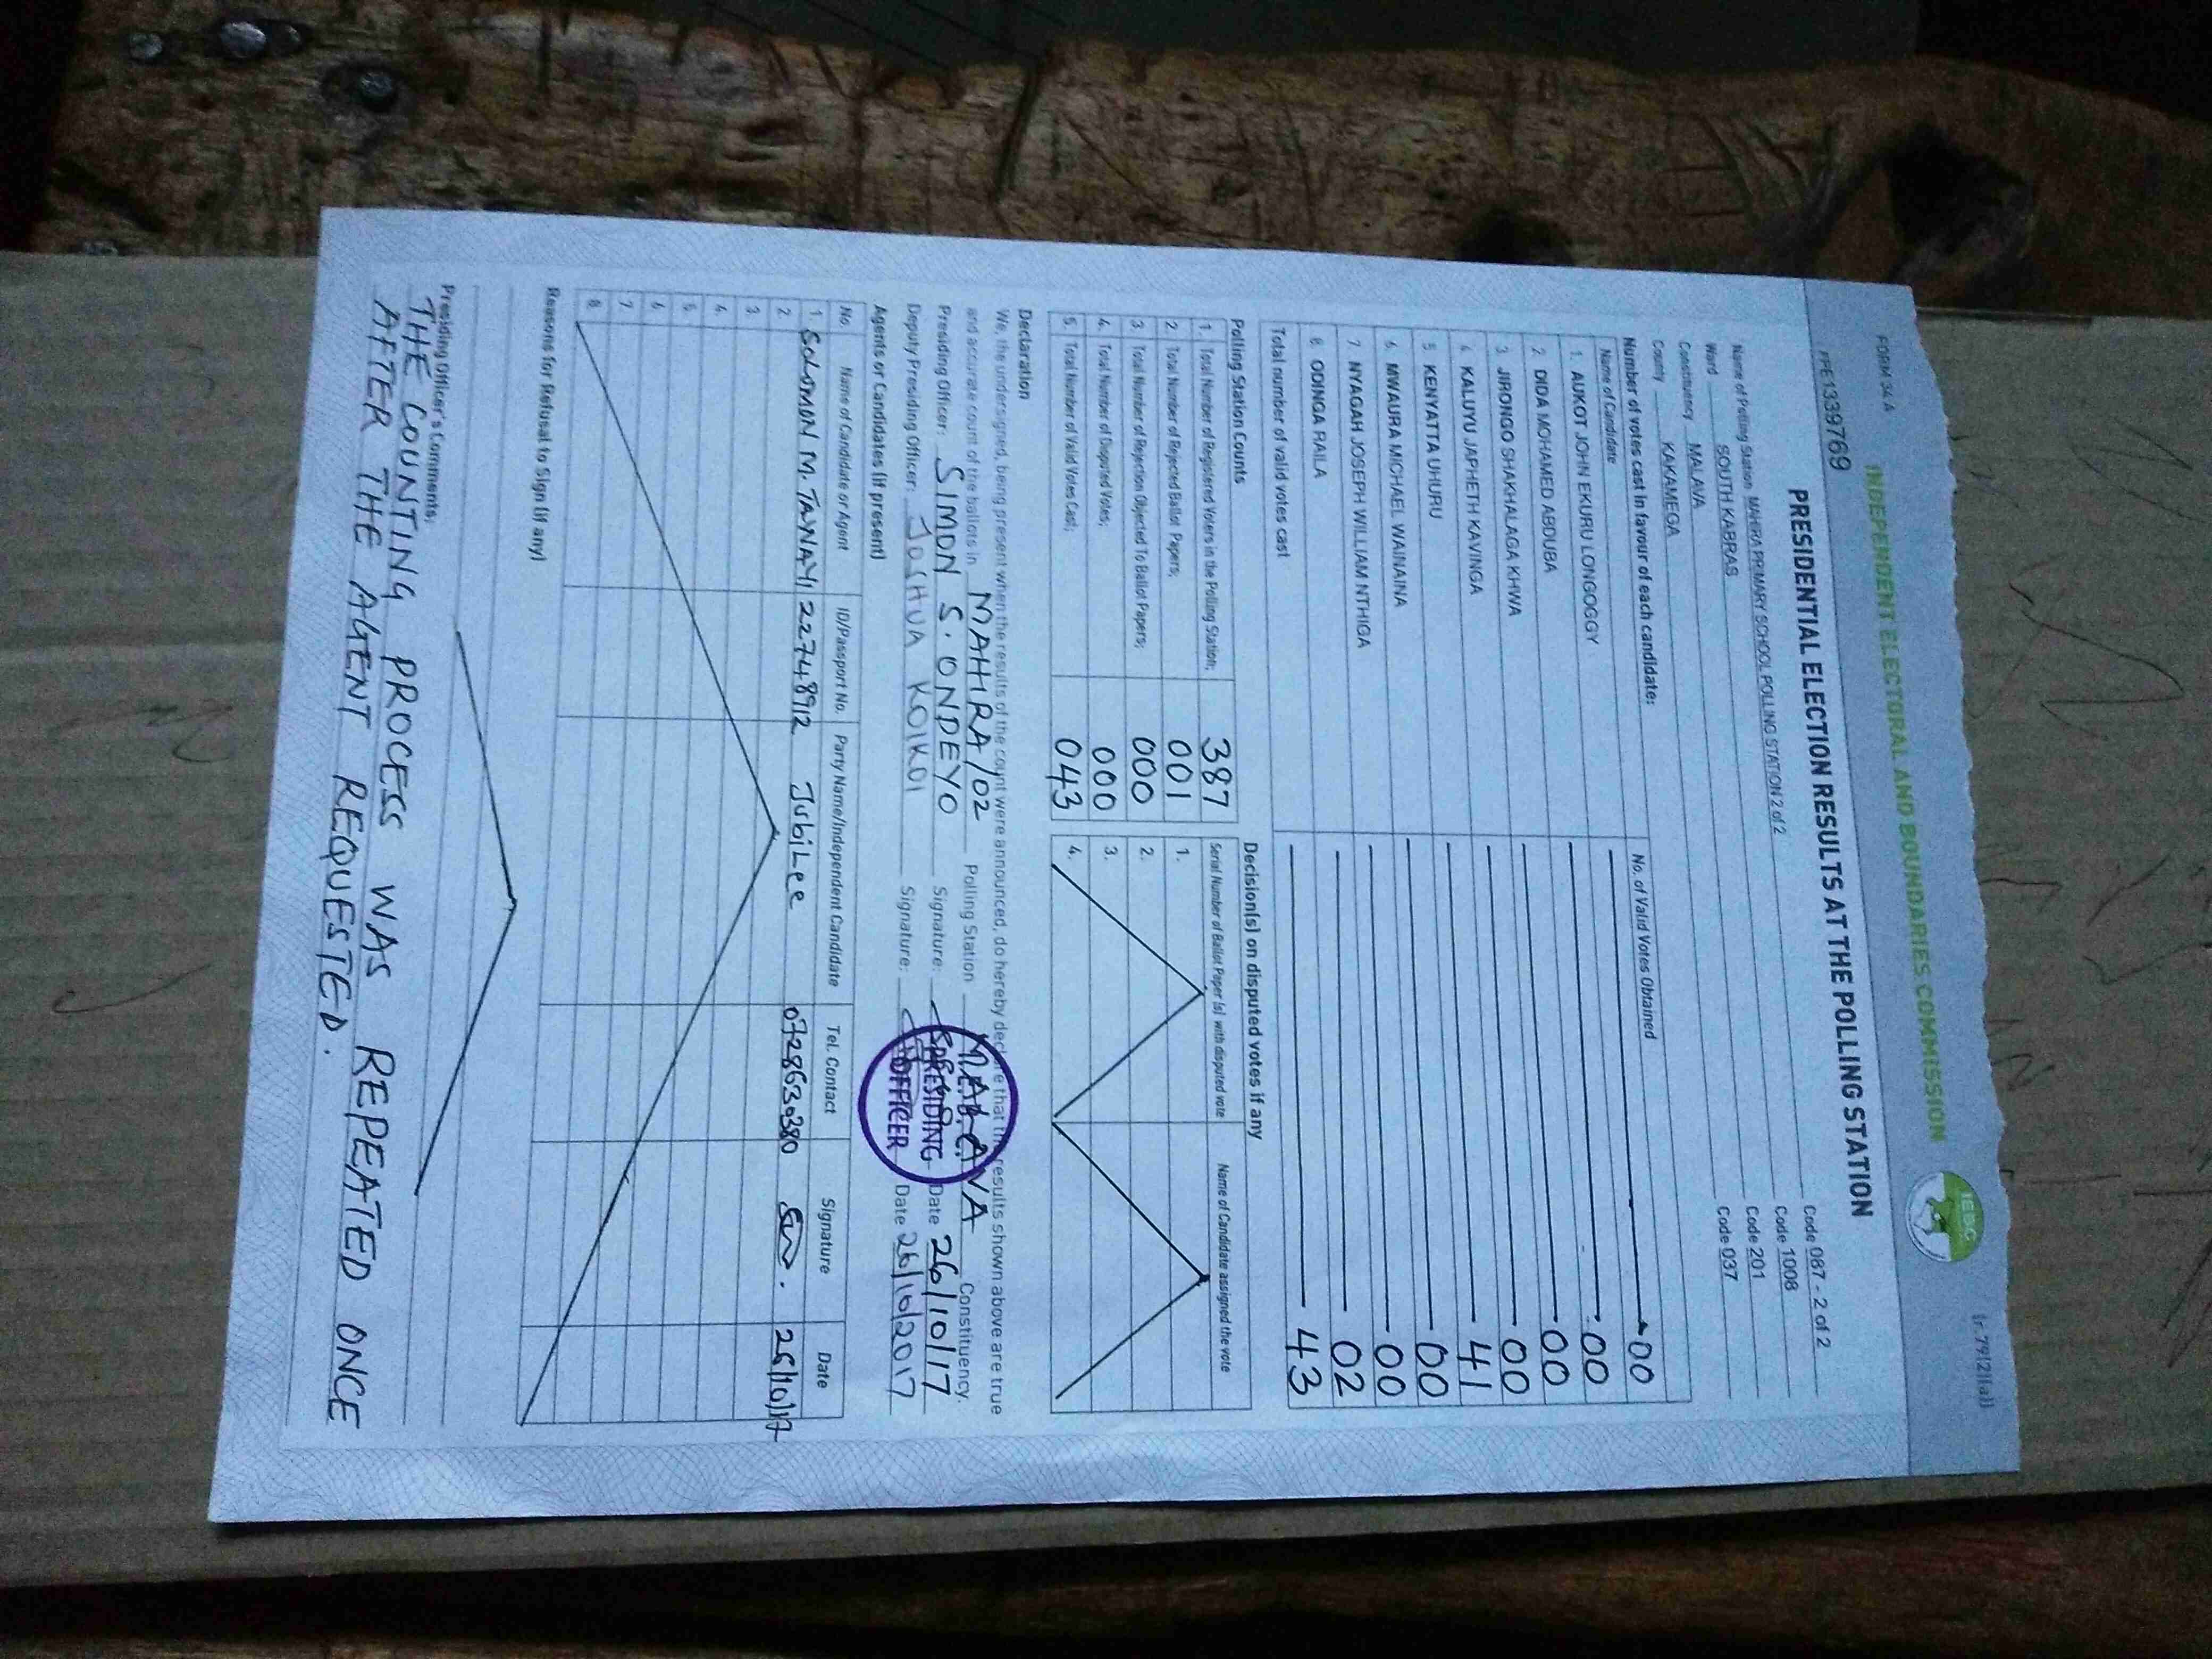 FORM 34 A
(r.79(2)(a))
INDEPENDENT ELECTORAL AND BOUNDARIES COMMISSION
IEBC
PPE1339769
PRESIDENTIAL ELECTION RESULTS AT THE POLLING STATION
Name of Polling Station MAHIRA PRIMARY SCHOOL POLLING STATION 2 of 2 Code 087 - 2 of 2
Ward SOUTH KABRAS Code 1008
Constituency MALAVA Code 201
County KAKAMEGA Code 037
Number of votes cast in favour of each candidate:
Name of Candidate No. of Valid Votes Obtained
1. AUKOT JOHN EKURU LONGOGGY 00
2 DIDA MOHAMED ABDUBA 00
3 JIRONGO SHAKHALAGA KHWA 00
4 KALUYU JAPHETH KAVINGA 00
5 KENYATTA UHURU 41
6 MWAURA MICHAEL WAINAINA 00
7 NYAGAH JOSEPH WILLIAM NTHIGA 00
8 ODINGA RAILA 02
Total number of valid votes cast 43
Polling Station Counts
1. Total Number of Registered Voters in the Polling Station; 387
2. Total Number of Rejected Ballot Papers; 001
3. Total Number of Rejection Objected To Ballot Papers; 000
4. Total Number of Disputed Votes; 000
5. Total Number of Valid Votes Cast; 043
Decision(s) on disputed votes if any
Serial Number of Ballot Paper (s) with disputed vote Name of Candidate assigned the vote
1.
2.
3.
4.
Declaration
We, the undersigned, being present when the results of the count were announced, do hereby declare that the results shown above are true
and accurate count of the ballots in MAHIRA/02 Polling Station MALAVA Constituency.
Presiding Officer: SIMON S. ONDEYO Signature: Date 26/10/17
Deputy Presiding Officer: JOSHUA KOIKOI Signature: Date 26/10/2017
I.E.B.C.
PRESIDING
OFFICER
Agents or Candidates (if present)
No Name of Candidate or Agent ID/Passport No. Party Name/Independent Candidate Tel. Contact Signature Date
1. SOLOMON M. TAYAYI 22748912 JubiLee 0728630380 26/10/17
2
3
4
5
6
7
8
Reasons for Refusal to Sign (if any)
Presiding Officer's Comments:
THE COUNTING PROCESS WAS REPEATED ONCE
AFTER THE AGENT REQUESTED.